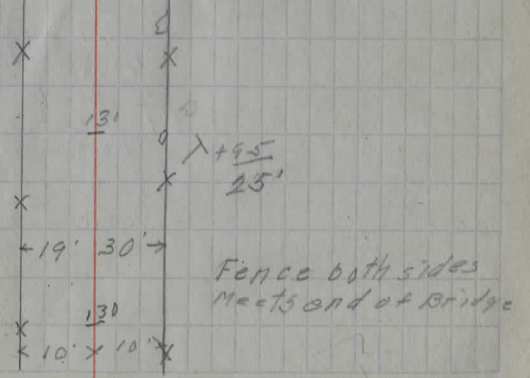 131
+95
25'
19' 30'
Fence both sides
Meets end of Bridge
130
10' 10'